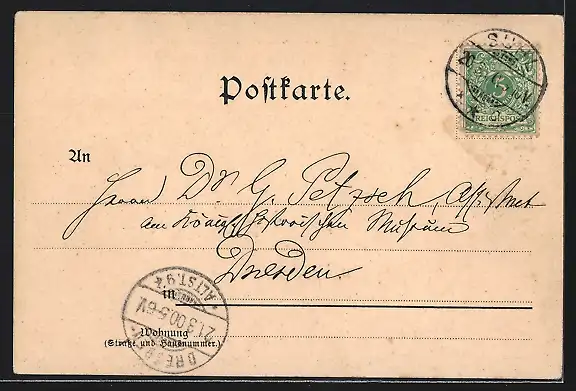 Postkarte.
5
REICHSPOST
An
Herrn Dr. G. Petzsch, Assistent
am Königl. Historischen Museum
Dresden.
in
ALTST. 94
21.3.00.5-6V.
DRESDEN
Wohnung
(Straße und Hausnummer.)